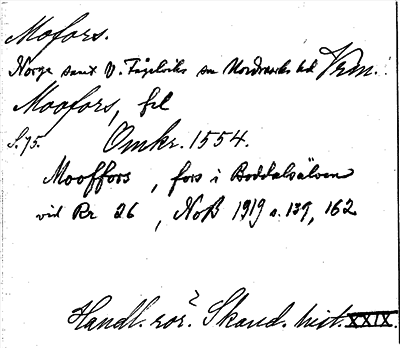 Mofors.
Norge samt V. Fågelviks sn Nordmarks hd Vrm.
Moofors, fcl
S. 75. Omkr. 1554.
Mooffors, fors i Boddalsälven
vid Rr 26, NoB 1919 s. 139, 162
Handl. rör. Skand. hist. XXIX.